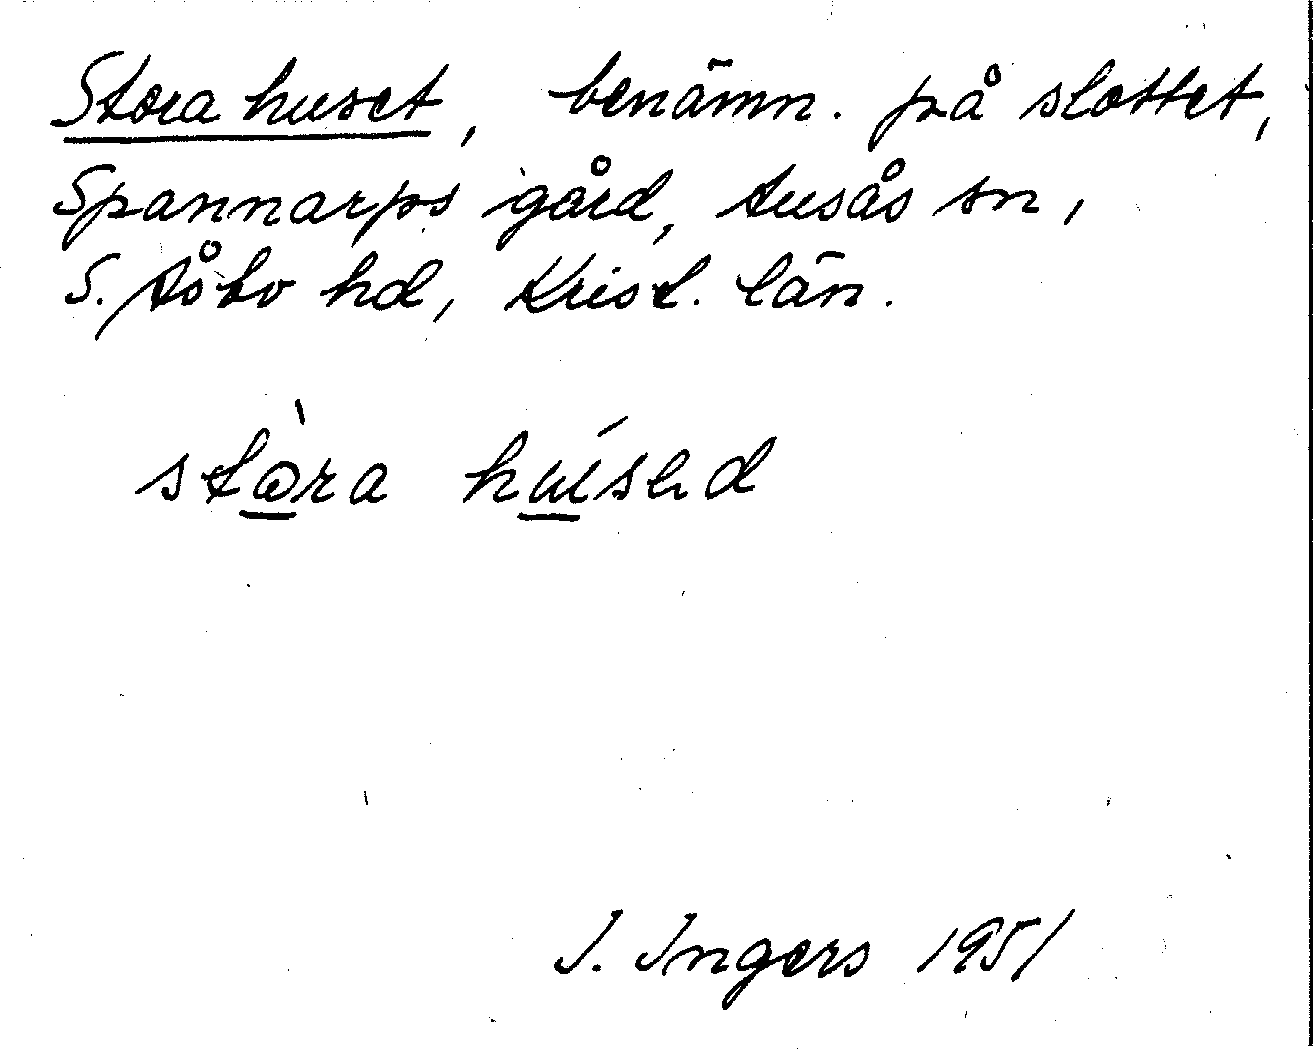 Stora huset, benämn. på slottet,
Spannarps gård, Ausås sn,
S. Åsbo hd, Krist. län.
stòra húsed
I. Ingers 1951